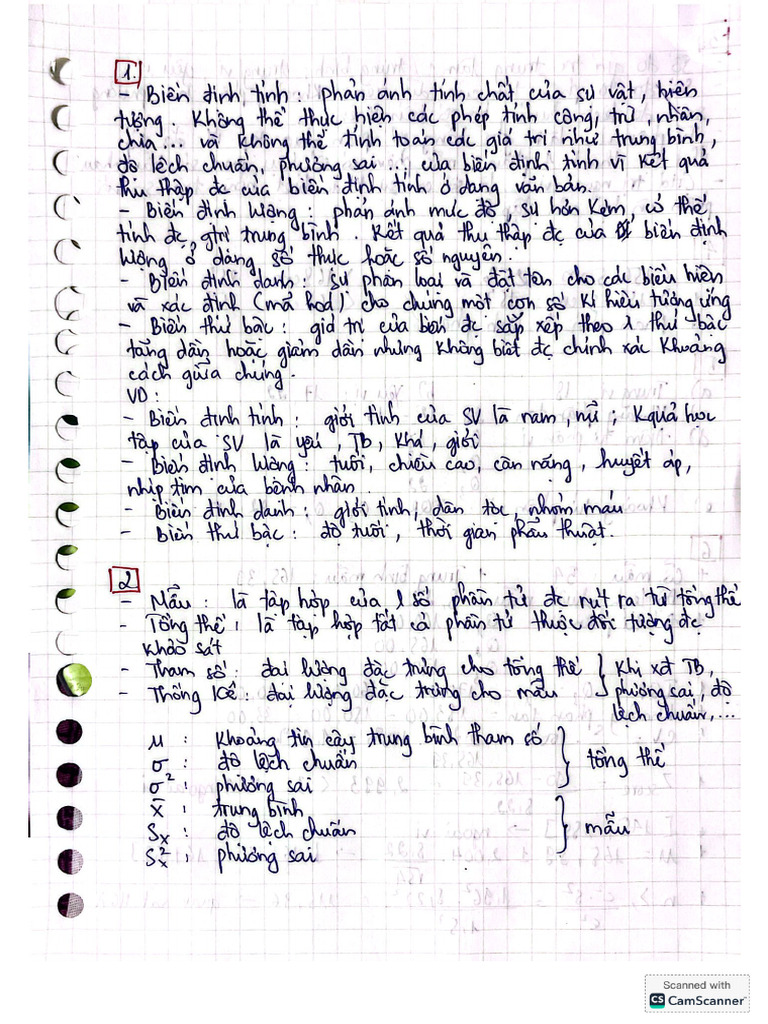 1.
- Biến định tính : phản ánh tính chất của sự vật, hiện
tượng. Không thể thực hiện các phép tính cộng, trừ, nhân,
chia... và không thể tính toán các giá trị như trung bình,
độ lệch chuẩn, phương sai ... của biến định tính vì kết quả
thu thập đc của biến định tính ở dạng văn bản.
- Biến định lượng : phản ánh mức độ, sự hơn kém, có thể
tính đc gtrị trung bình. Kết quả thu thập đc của biến định
lượng ở dạng số thực hoặc số nguyên.
- Biến định danh : sự phân loại và đặt tên cho các biểu hiện
và xác định (mã hoá) cho chúng một con số kí hiệu tương ứng
- Biến thứ bậc : giá trị của biến đc sắp xếp theo 1 thứ bậc
tăng dần hoặc giảm dần nhưng không biết đc chính xác khoảng
cách giữa chúng.
VD:
- Biến định tính : giới tính của SV là nam, nữ ; kquả học
tập của SV là yếu, TB, khá, giỏi
- Biến định lượng : tuổi, chiều cao, cân nặng, huyết áp,
nhịp tim của bệnh nhân.
- Biến định danh : giới tính, dân tộc, nhóm máu
- Biến thứ bậc : độ tuổi, thời gian phẫu thuật.
2
- Mẫu : là tập hợp của 1 số phần tử đc rút ra từ tổng thể
- Tổng thể : là tập hợp tất cả phần tử thuộc đối tượng đc
khảo sát
- Tham số : đại lượng đặc trưng cho tổng thể } khi xét TB,
- Thống kê : đại lượng đặc trưng cho mẫu } phương sai, độ
lệch chuẩn,...
μ : khoảng tin cậy trung bình tham số
σ : độ lệch chuẩn } tổng thể
σ² : phương sai
x̄ : trung bình
Sx : độ lệch chuẩn } mẫu
S²x : phương sai
Scanned with
CS CamScanner